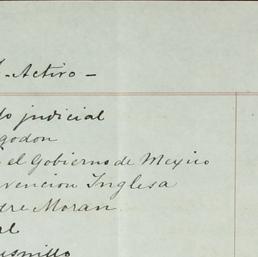 Activo -
do judicial
godon
el Gobierno de Mexico
vencion Inglesa
dre Moran